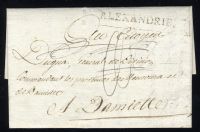 ALEXANDRIE
Au Citoyen
Dugua, Général de Division
Commandant les provinces de Mansoura et
de Damiette
A Damiette